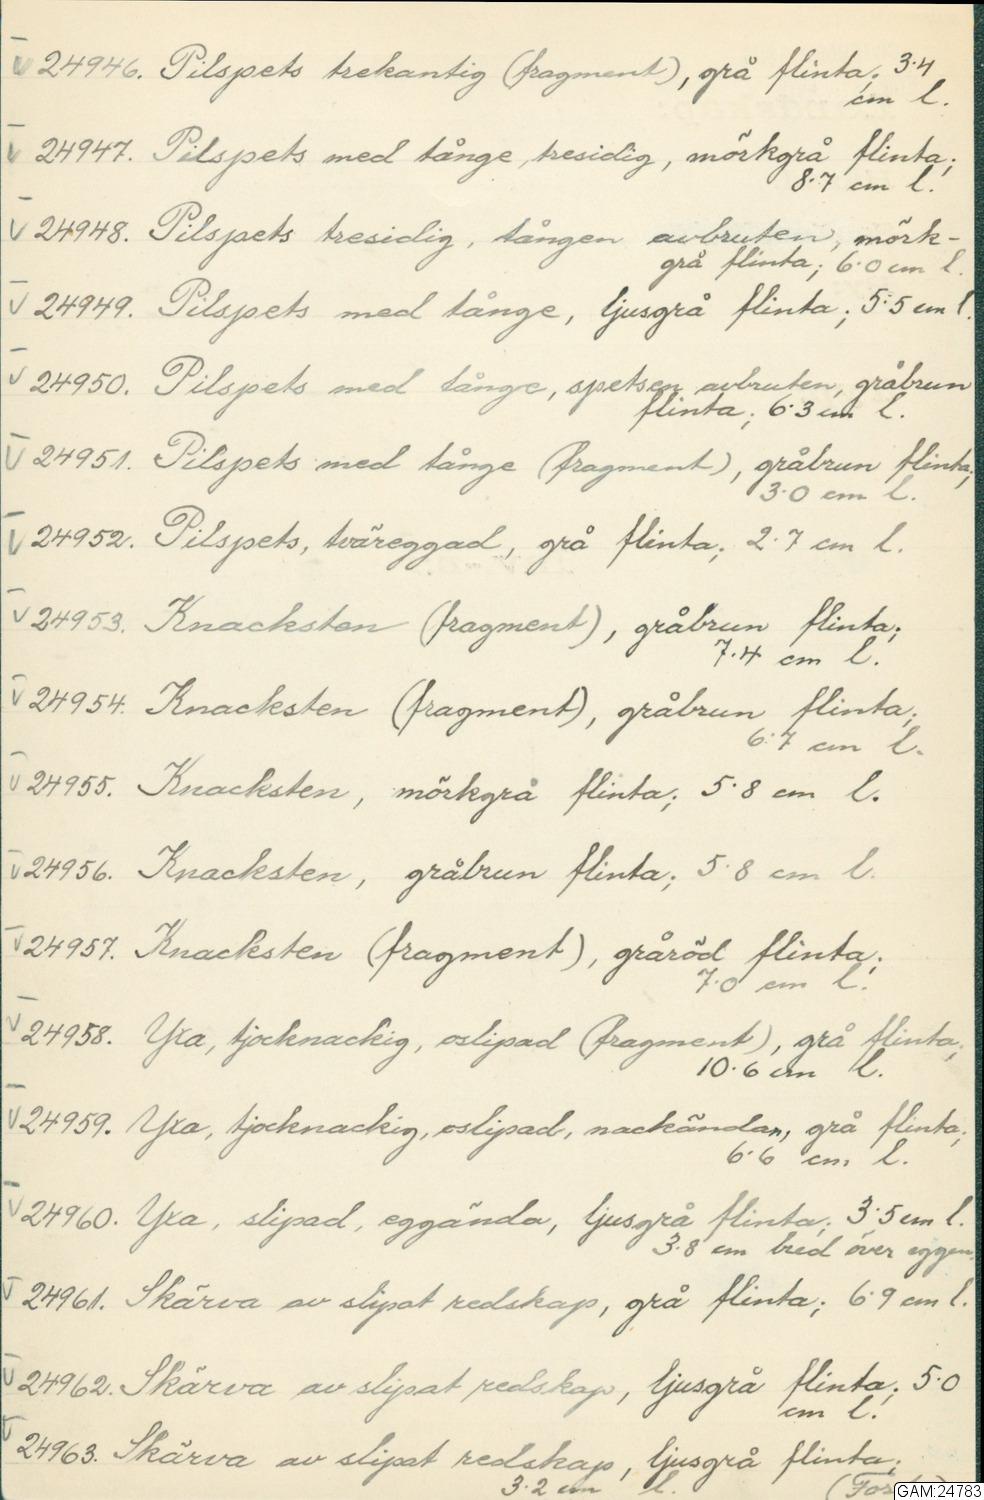 V 24946. Pilspets trekantig (fragment), grå flinta; 3.4
cm l.
V 24947. Pilspets med tånge, tresidig, mörkgrå flinta;
8.7 cm l.
V 24948. Pilspets tresidig, tången avbruten, mörk-
grå flinta; 6.0 cm l.
V 24949. Pilspets med tånge, ljusgrå flinta; 5.5 cm l.
V 24950. Pilspets med tånge, spetsen avbruten, gråbrun
flinta; 6.3 cm l.
V 24951. Pilspets med tånge (fragment), gråbrun flinta;
3.0 cm l.
V 24952. Pilspets, tväreggad, grå flinta; 2.7 cm l.
V 24953. Knacksten (fragment), gråbrun flinta;
7.4 cm l.
V 24954. Knacksten (fragment), gråbrun flinta;
6.7 cm l.
V 24955. Knacksten, mörkgrå flinta; 5.8 cm l.
V 24956. Knacksten, gråbrun flinta; 5.8 cm l.
V 24957. Knacksten (fragment), gråröd flinta;
7.0 cm l.
V 24958. Yxa, tjocknackig, oslipad (fragment), grå flinta;
10.6 cm l.
V 24959. Yxa, tjocknackig, oslipad, nackändan, grå flinta;
6.6 cm l.
V 24960. Yxa, slipad, eggända, ljusgrå flinta; 3.5 cm l.
3.8 cm bred över eggen.
V 24961. Skärva av slipat redskap, grå flinta; 6.9 cm l.
V 24962. Skärva av slipat redskap, ljusgrå flinta; 5.0
cm l.
V 24963. Skärva av slipat redskap, ljusgrå flinta;
3.2 cm l.
GAM:24783